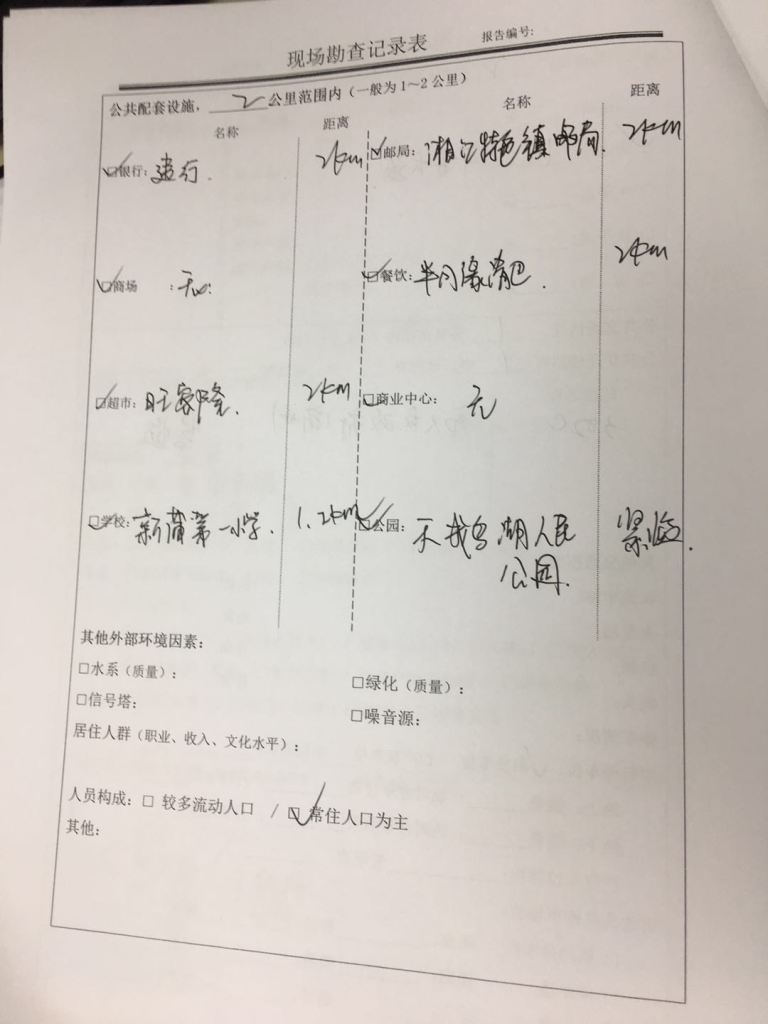 现场勘查记录表
报告编号:
公共配套设施， 2 公里范围内（一般为1～2公里）
名称 距离 名称 距离
☑银行: 建行. 2km ☑邮局: 湘江特色镇邮局. 2km
☑商场 : 无. ☑餐饮: 半月缘 . 2km
☑超市: 旺家隆. 2km □商业中心: 无
☑学校: 新蒲第一小学. 1.2km ☑公园: 天鹅湖人民 紧临.
公园.
其他外部环境因素:
□水系（质量）: □绿化（质量）:
□信号塔: □噪音源:
居住人群（职业、收入、文化水平）:
人员构成: □ 较多流动人口 / ☑ 常住人口为主
其他: